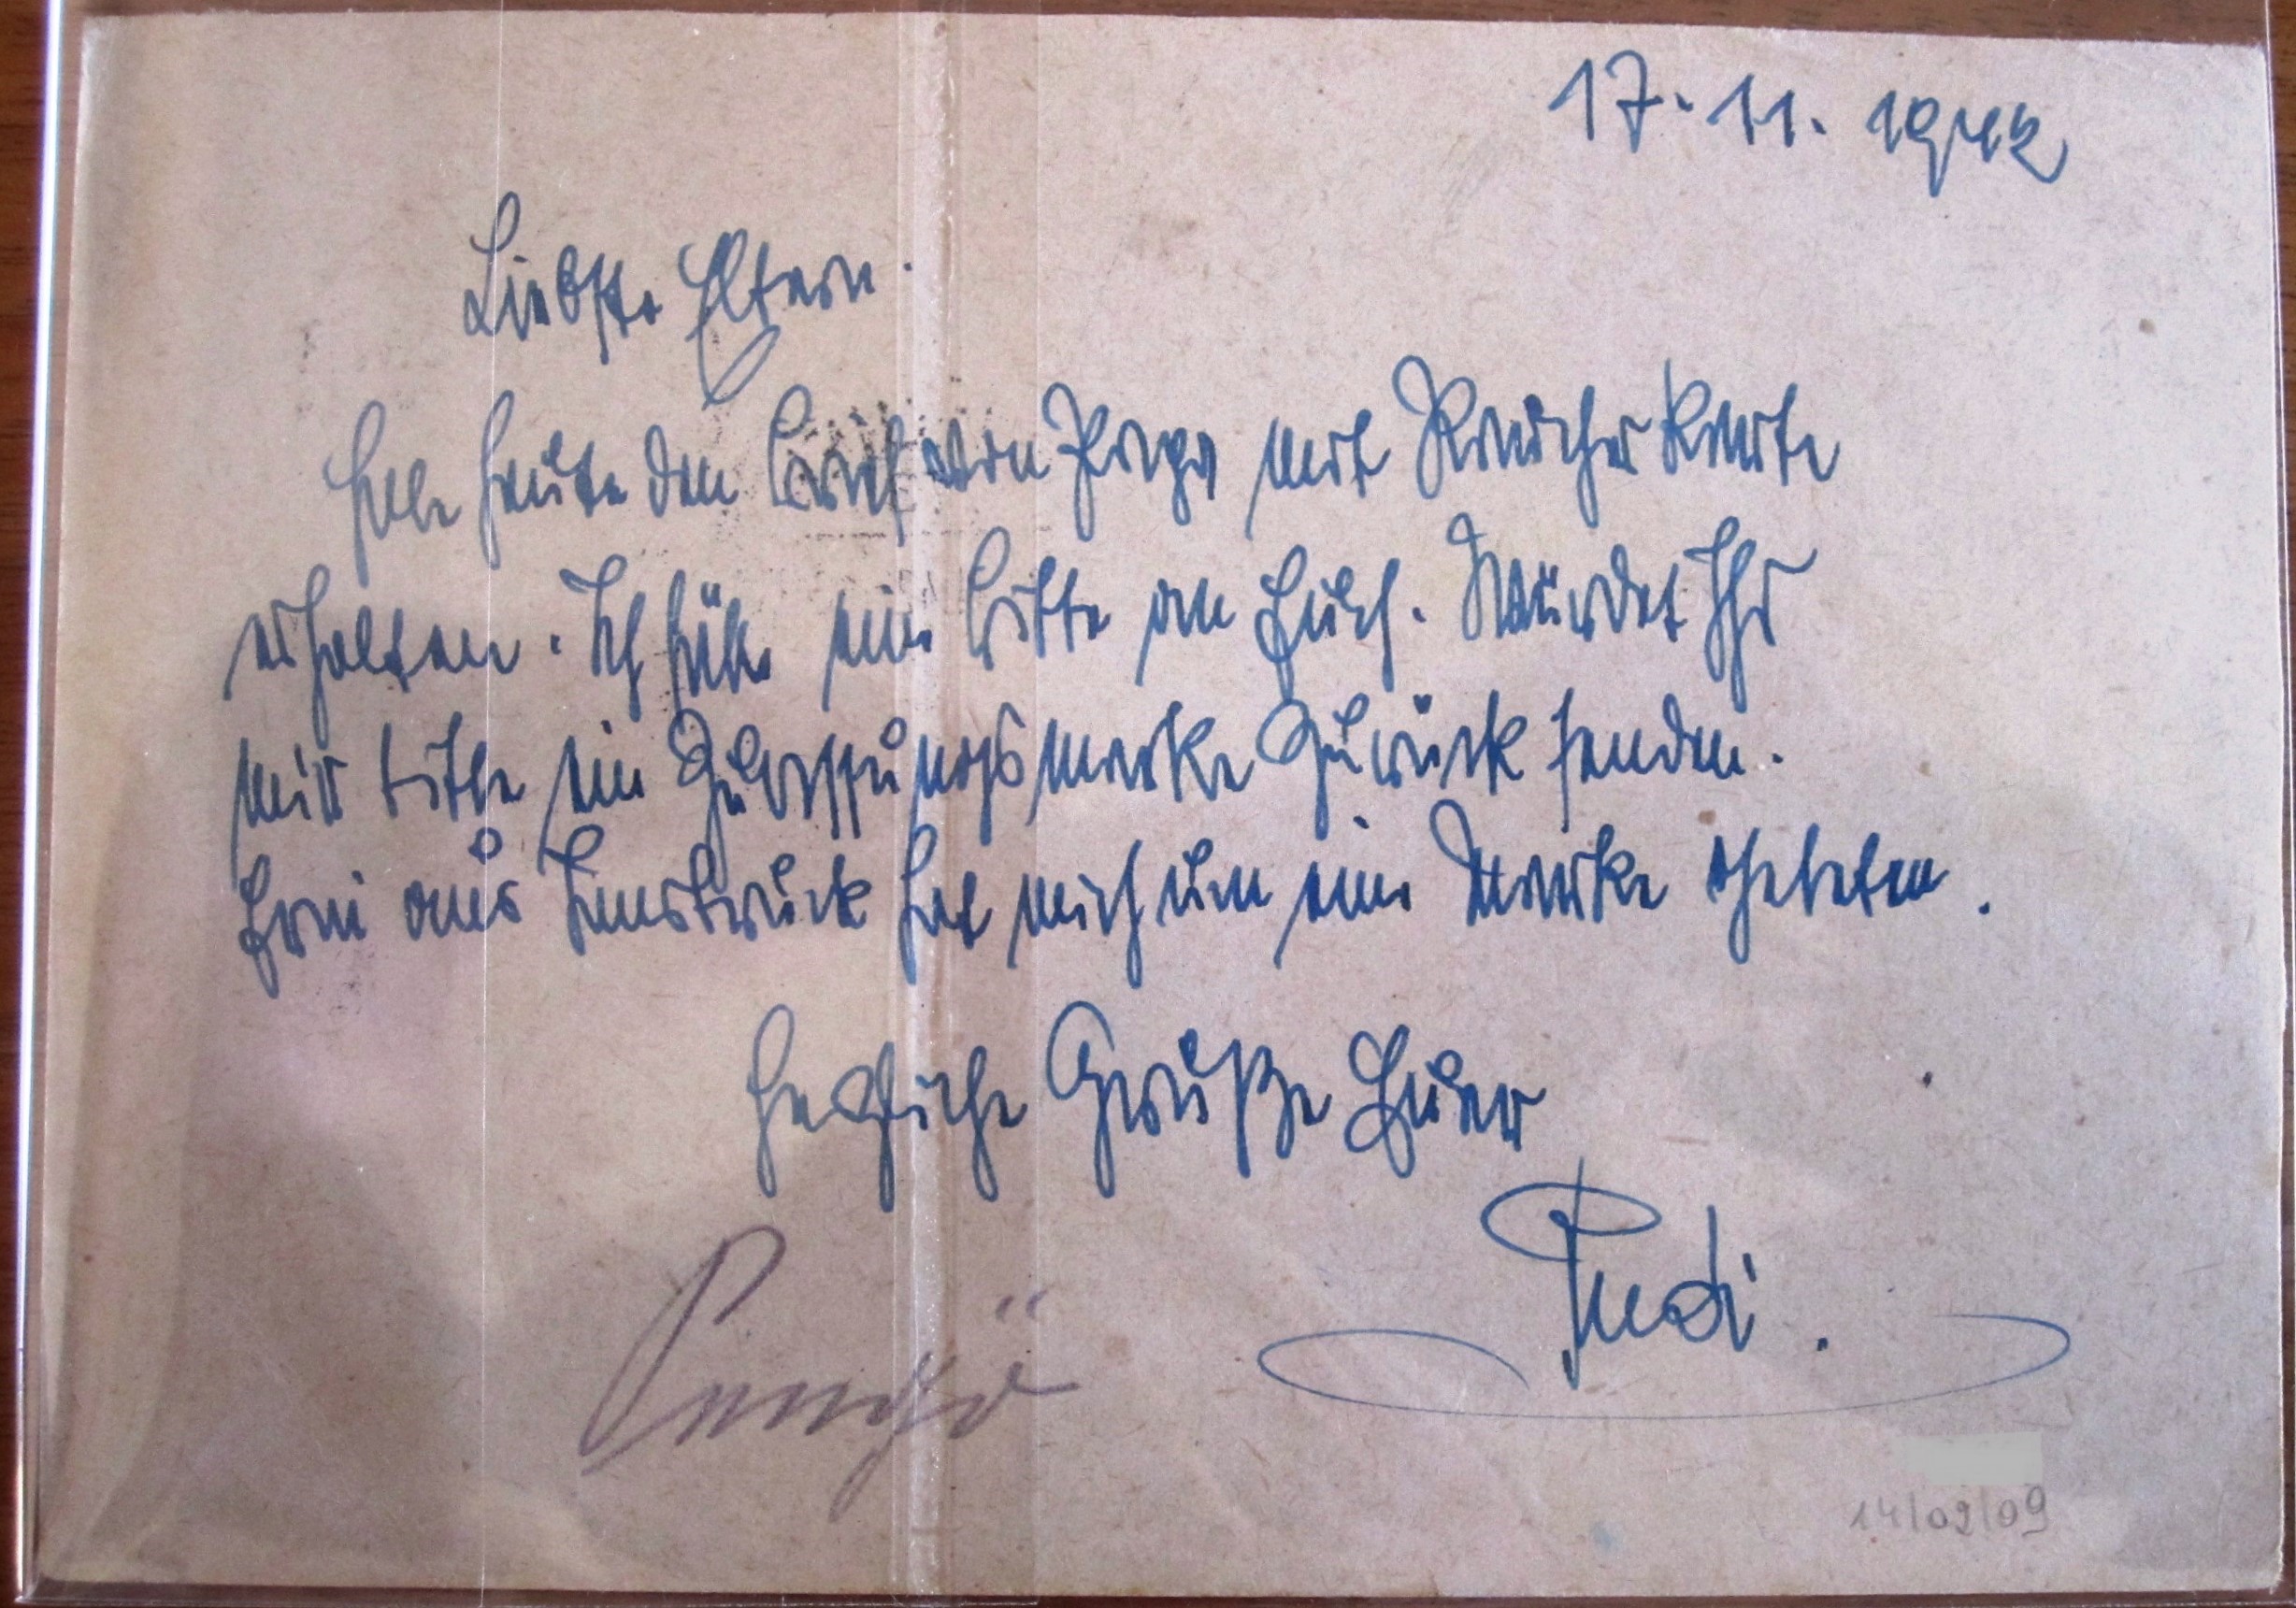 17. 11. 1942
Liebste Eltern.
Habe heute den Brief von Papa mit Raucher Karte
erhalten. Ich hätte eine Bitte an Euch. Würdet Ihr
mir bitte ein Zulassungsmarke Zurück senden.
Frau aus Innsbruck hat mich um eine Marke gebeten.
Herzliche Grüße Euer
Rudi.
Pengö
14/02/09